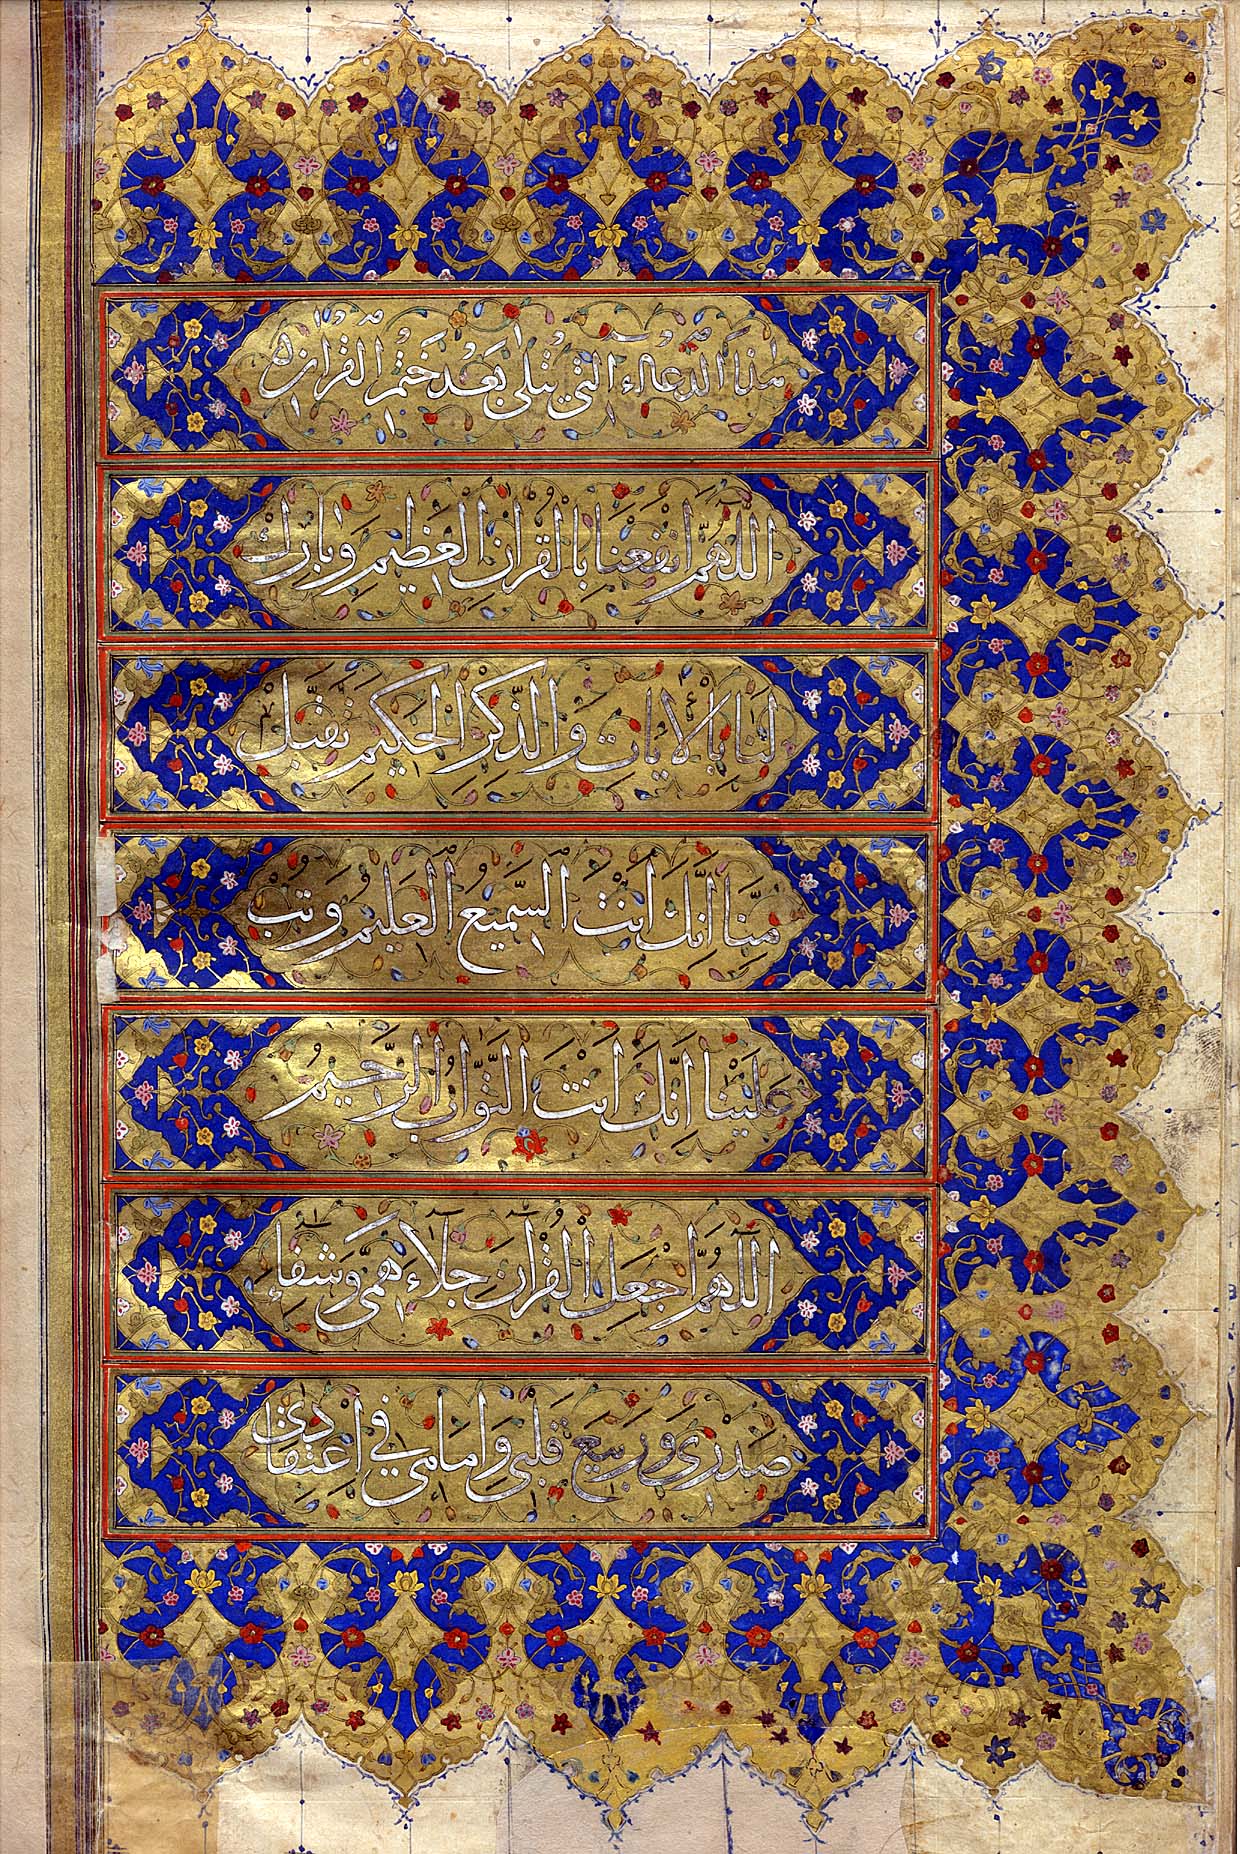 هذا الدعاء التي يتلى بعد ختم القرآن
اللَّهُمَّ انفعنا بالقُرْآنِ العَظِيمِ وَبَارِكْ
لَنَا بالآيَاتِ وَالذِّكْرِ الحَكِيمِ تَقَبَّلْ
مِنَّا اِنَّكَ اَنْتَ السَّمِيعُ العَلِيمُ وَتُبْ
عَلَيْنَا اِنَّكَ اَنْتَ التَّوَّابُ الرَّحِيمُ
اللَّهُمَّ اجْعَلِ القُرْآنَ جِلَاءَ هَمِّي وَشِفَاءَ
صَدْرِي وَرَبِيعَ قَلْبِي وَاِمَامِي فِي اعْتِقَادِي